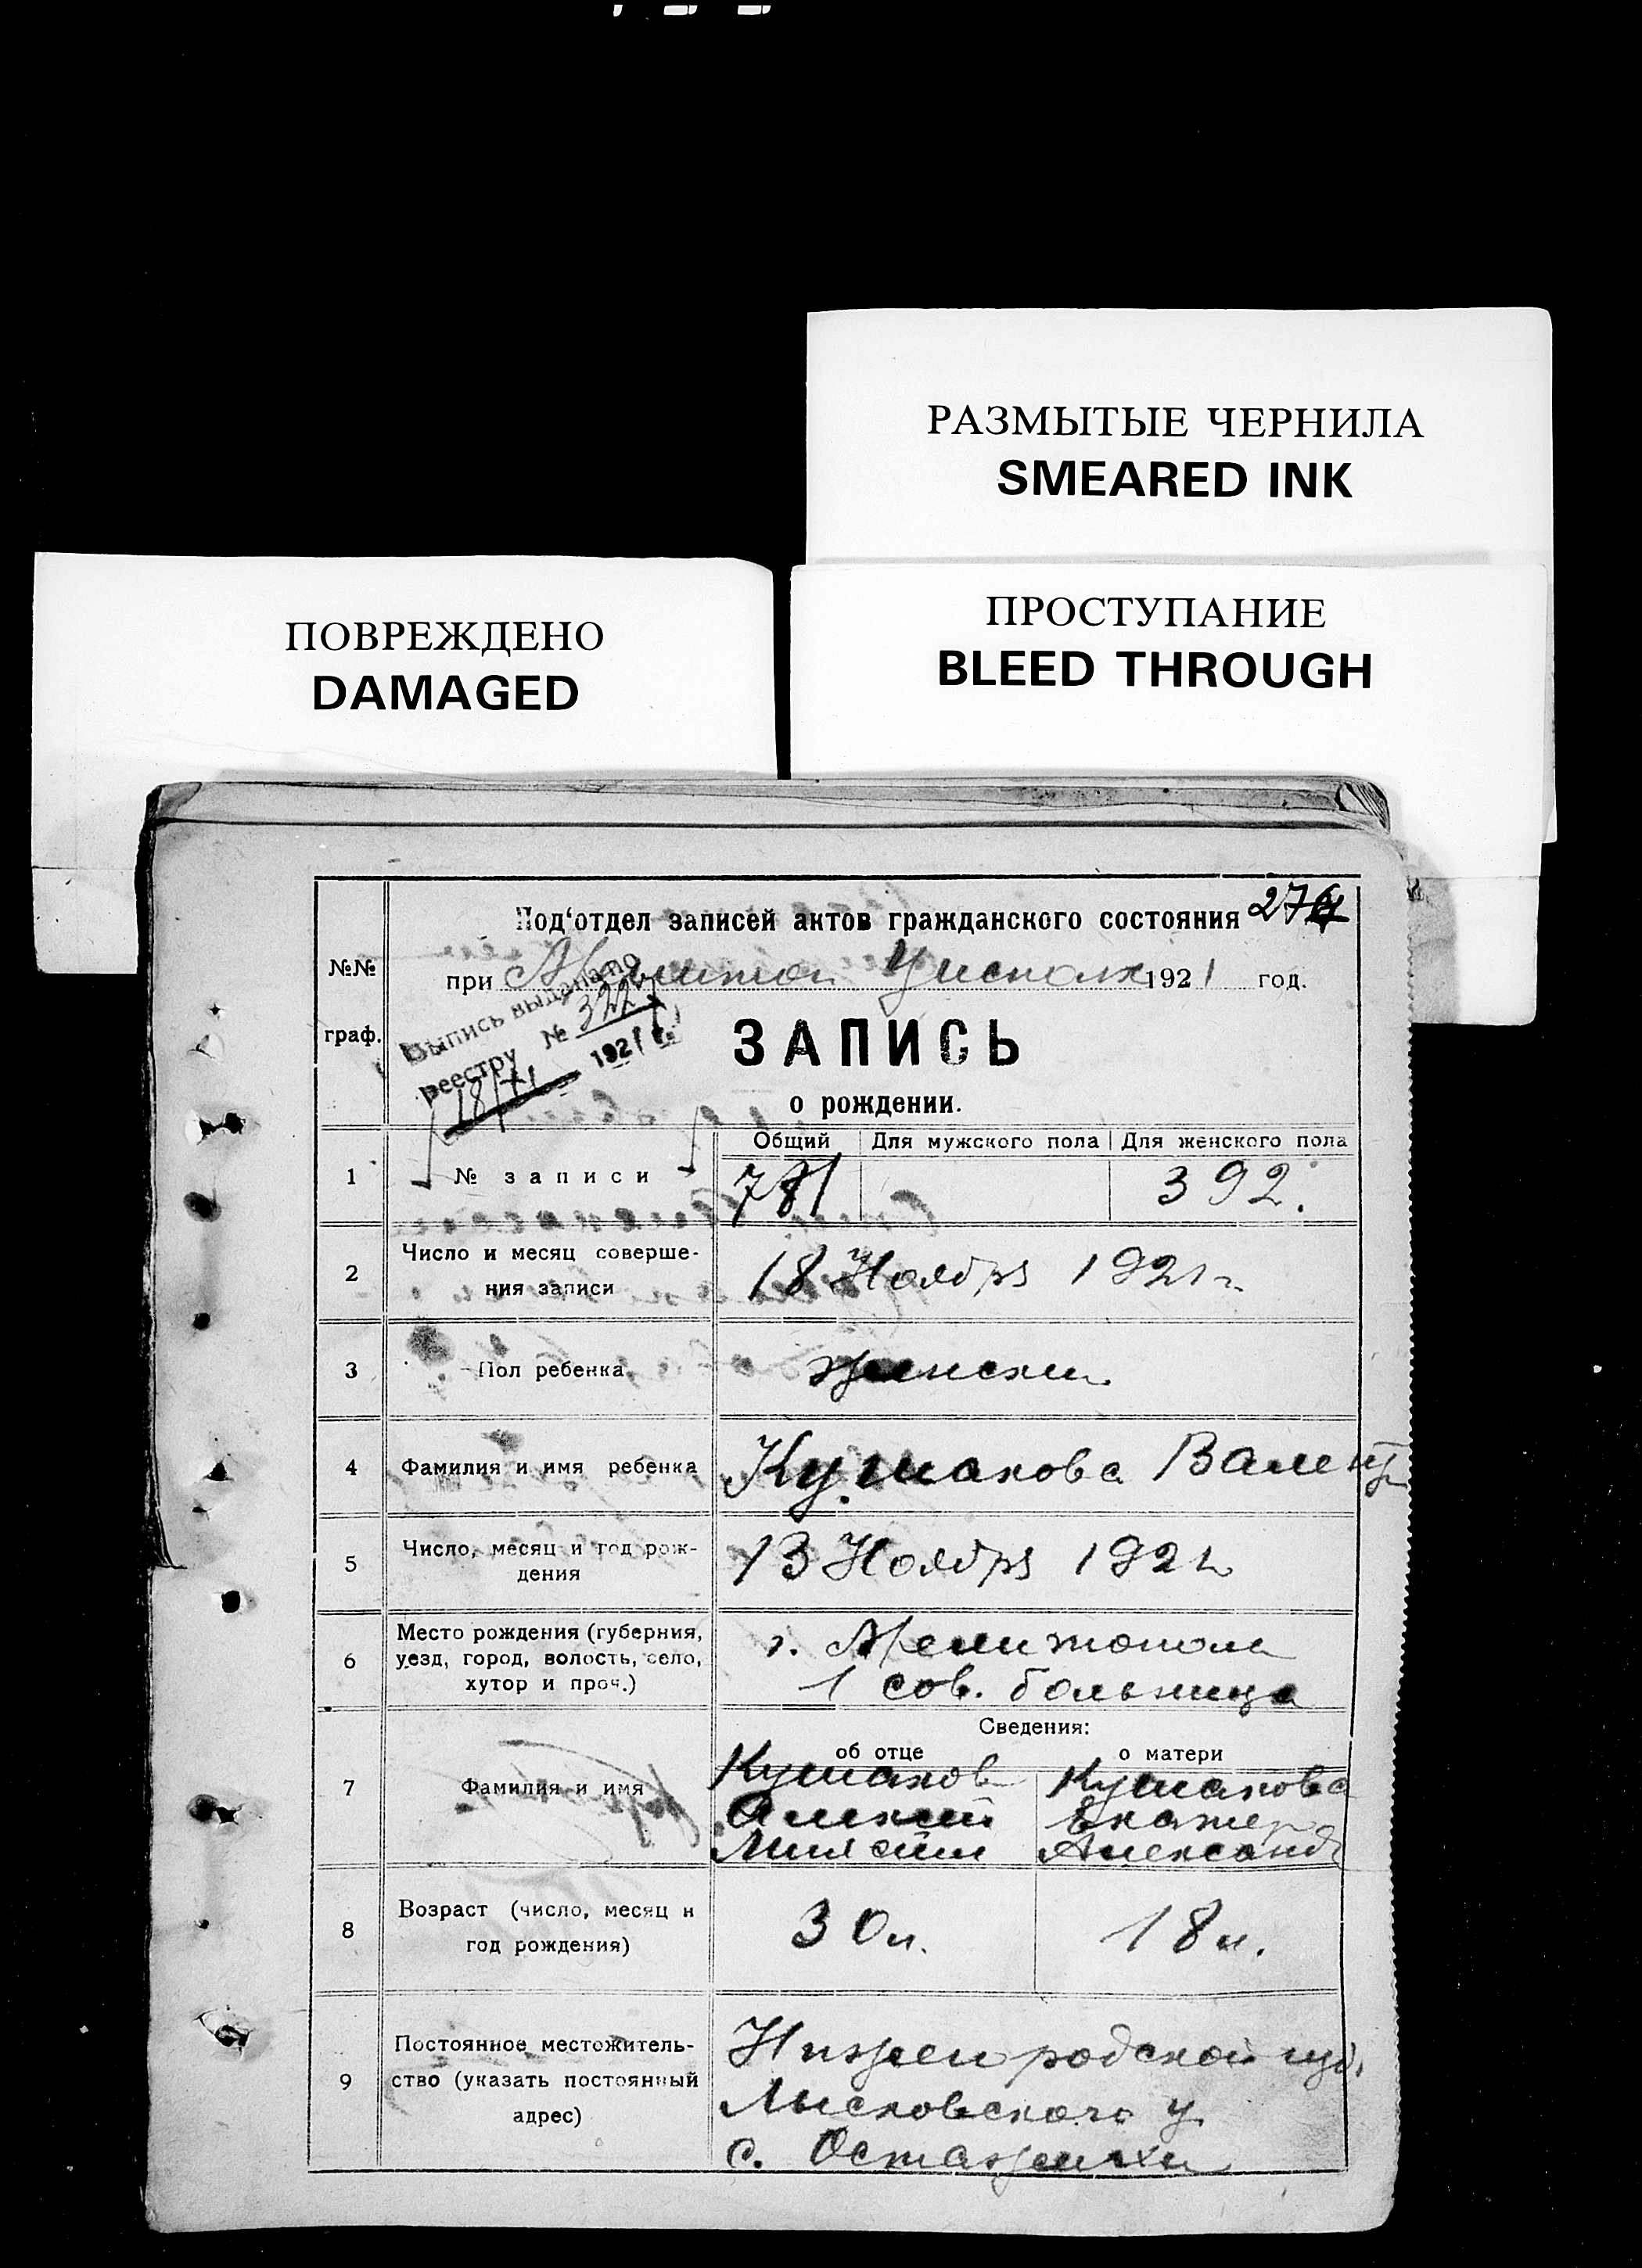 РАЗМЫТЫЕ ЧЕРНИЛА
SMEARED INK
ПРОСТУПАНИЕ
BLEED THROUGH
ПОВРЕЖДЕНО
DAMAGED
Под'отдел записей актов гражданского состояния
№№
при Мелитоп Уисполк 1921 год.
граф.
Выпись выдана по
реестру № 3227
18/XI 1921 г.
ЗАПИСЬ
о рождении.
Общий Для мужского пола Для женского пола
1 № записи 781 392.
2 Число и месяц соверше-
ния записи
18 Ноября 1921 г.
3 Пол ребенка женский
4 Фамилия и имя ребенка Кушакова Валент
5 Число, месяц и год рож-
дения
13 Ноября 1921
6 Место рождения (губерния,
уезд, город, волость, село,
хутор и проч.)
г. Мелитополь
1 сов. больница
Сведения:
об отце о матери
7 Фамилия и имя
Кушаков Кушакова
Алексей Екатер
Александ
8 Возраст (число, месяц и
год рождения)
30 л. 18 л.
9 Постоянное местожитель-
ство (указать постоянный
адрес)
Нижегородской губ.
Лысковского у.
с. Осташихи